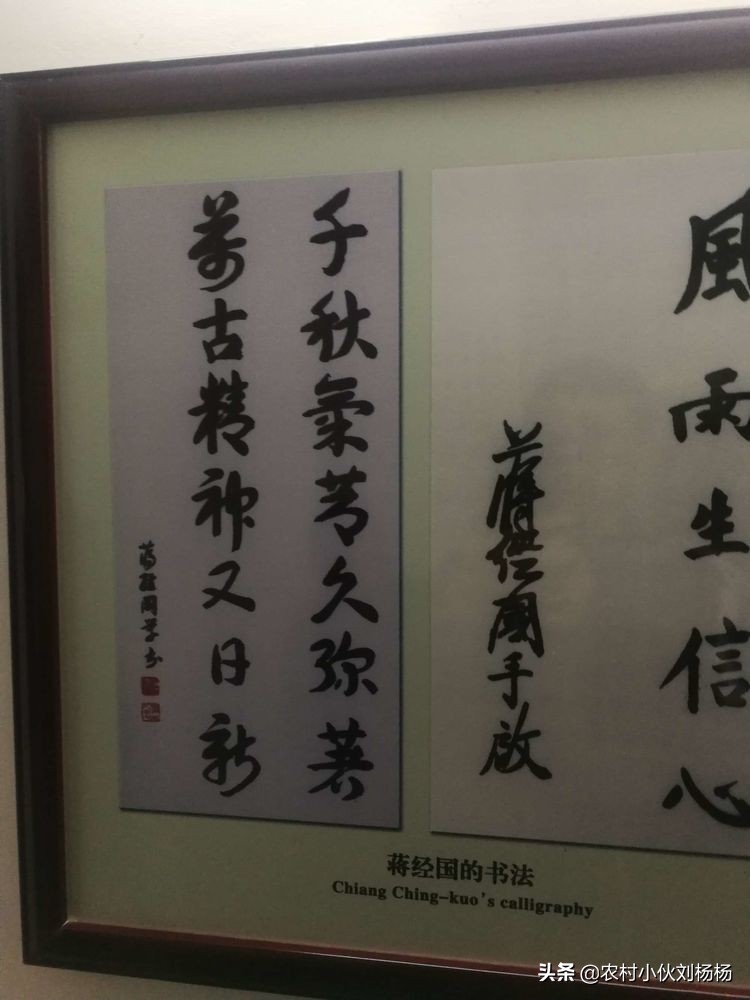 千秋氣節久彌著
萬古精神又日新
蔣經國學書
風雨生信心
蔣經國手啟
蒋经国的书法
Chiang Ching-kuo's calligraphy
头条 @农村小伙刘杨杨